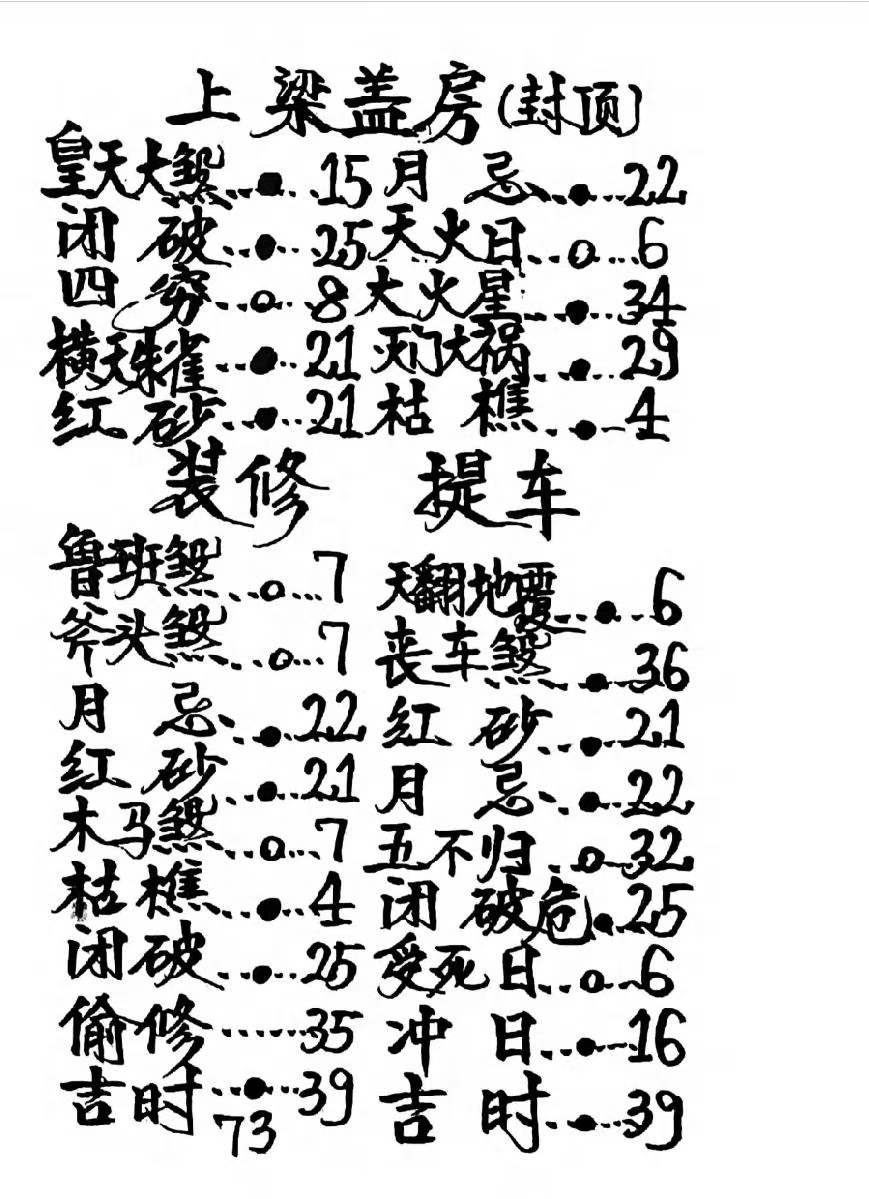 上梁盖房(封顶)
皇天大煞...●...15 月 忌...●...22
闭 破...●...25 天火日...○...6
四 穷...○...8 大火星...●...34
横天朱雀...●...21 灭门大祸...●...29
红 砂...●...21 枯 樵...●...4
装修 提车
鲁班煞...○...7 天翻地覆...●...6
斧头煞...○...7 丧车煞...●...36
月 忌...●...22 红 砂...●...21
红 砂...●...21 月 忌...●...22
木马煞...○...7 五不归...○...32
枯樵...●...4 闭 破危●...25
闭破...●...25 受死日...○...6
偷修......35 冲 日...●...16
吉时...●...39 吉 时...●...39
73